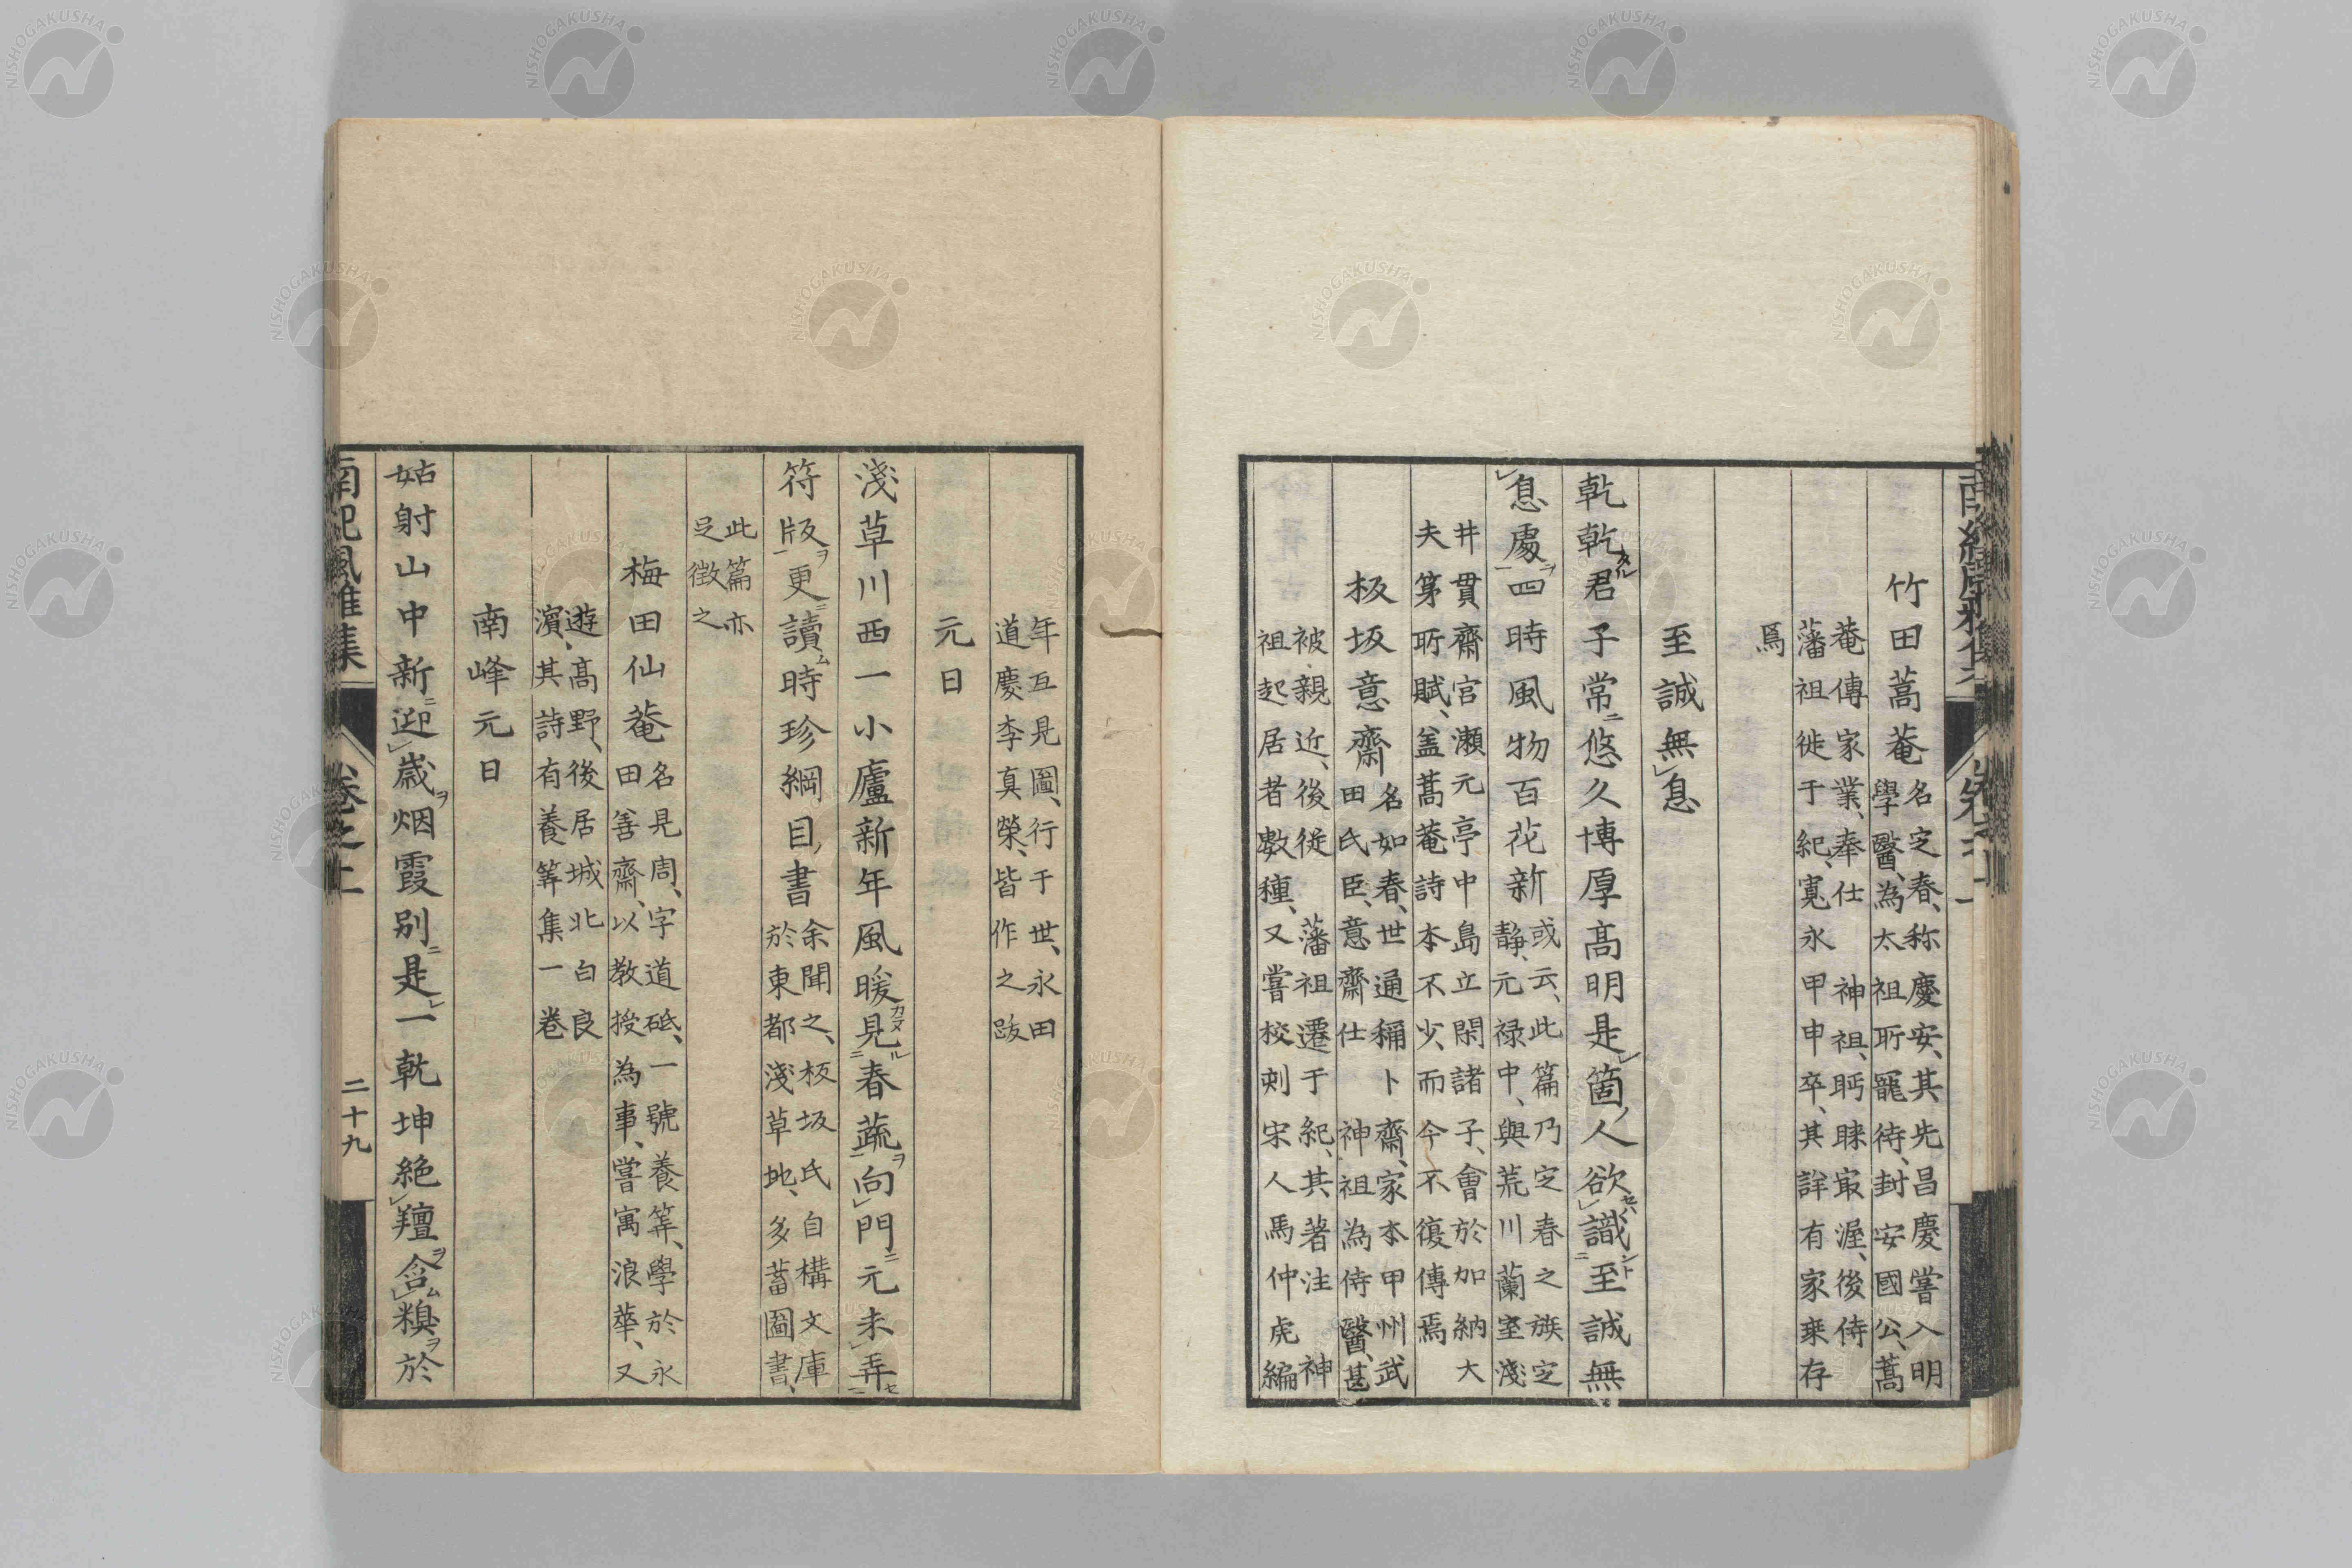 竹田蒿菴
名定春、称慶安、其先昌慶嘗入明
學醫、為太祖所寵待、封安國公、蒿
菴傳家業、奉仕　神祖、眄睞最渥、後侍
藩祖徙于紀、寛永甲申卒、其詳有家乗存
焉
至誠無息
乾乾君子常悠久博厚高明是箇人欲識至誠無
息處四時風物百花新
或云、此篇乃定春之族定
靜、元禄中、與荒川蘭室淺
井貫齋宮瀬元亭中島立閑諸子、會於加納大
夫第所賦、盖蒿菴詩本不少、而今不復傳焉
板坂意齋
名如春、世通稱卜齋、家本甲州武
田氏臣、意齋仕　神祖為侍醫、甚
被親近、後従　藩祖遷于紀、其著注　神
祖起居者數種、又嘗校刺宋人馬仲虎編
年互見圖、行于世、永田
道慶李真榮、皆作之跋
元日
淺草川西一小廬新年風暖見春蔬向門元未弄
符版更讀時珍綱目書
余聞之、板坂氏自構文庫
於東都淺草地、多蓄圖書、
此篇亦
足徴之
梅田仙菴
名見周、字道砥、一號養筭、學於永
田善齋、以教授為事、嘗寓浪華、又
遊髙野、後居城北白良
濱、其詩有養筭集一巻
南峰元日
姑射山中新迎歳烟霞別是一乾坤絶羶含糗於
南紀風雅集
巻之上
二十九
NISHOGAKUSHA